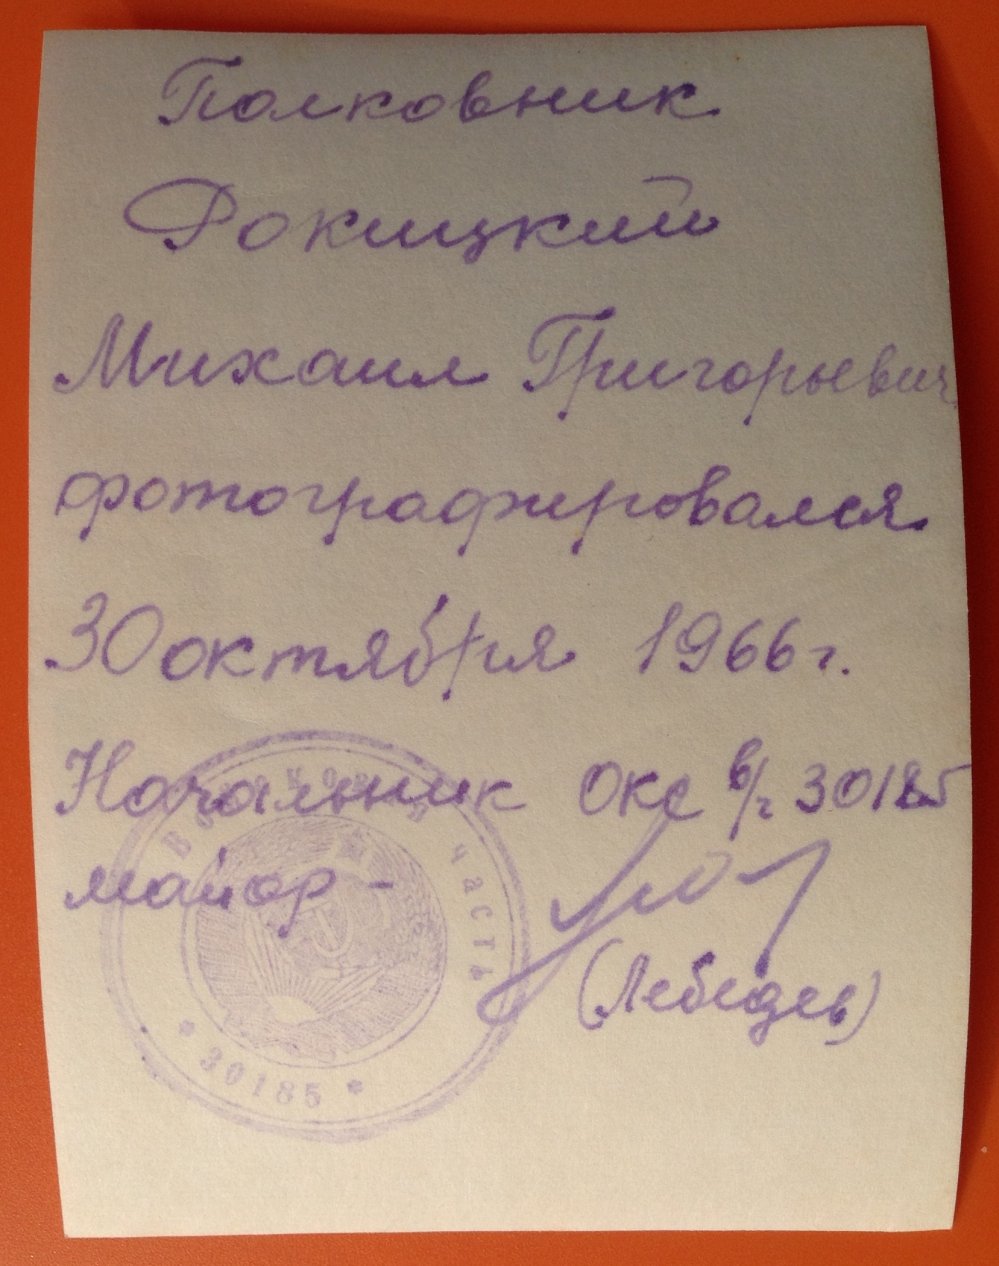 Полковник
Рокицкий
Михаил Григорьевич
фотографировался
30 октября 1966 г.
Начальник ОКС в/ч 30185
майор -
(Лебедев)
Войсковая часть
* 30185 *